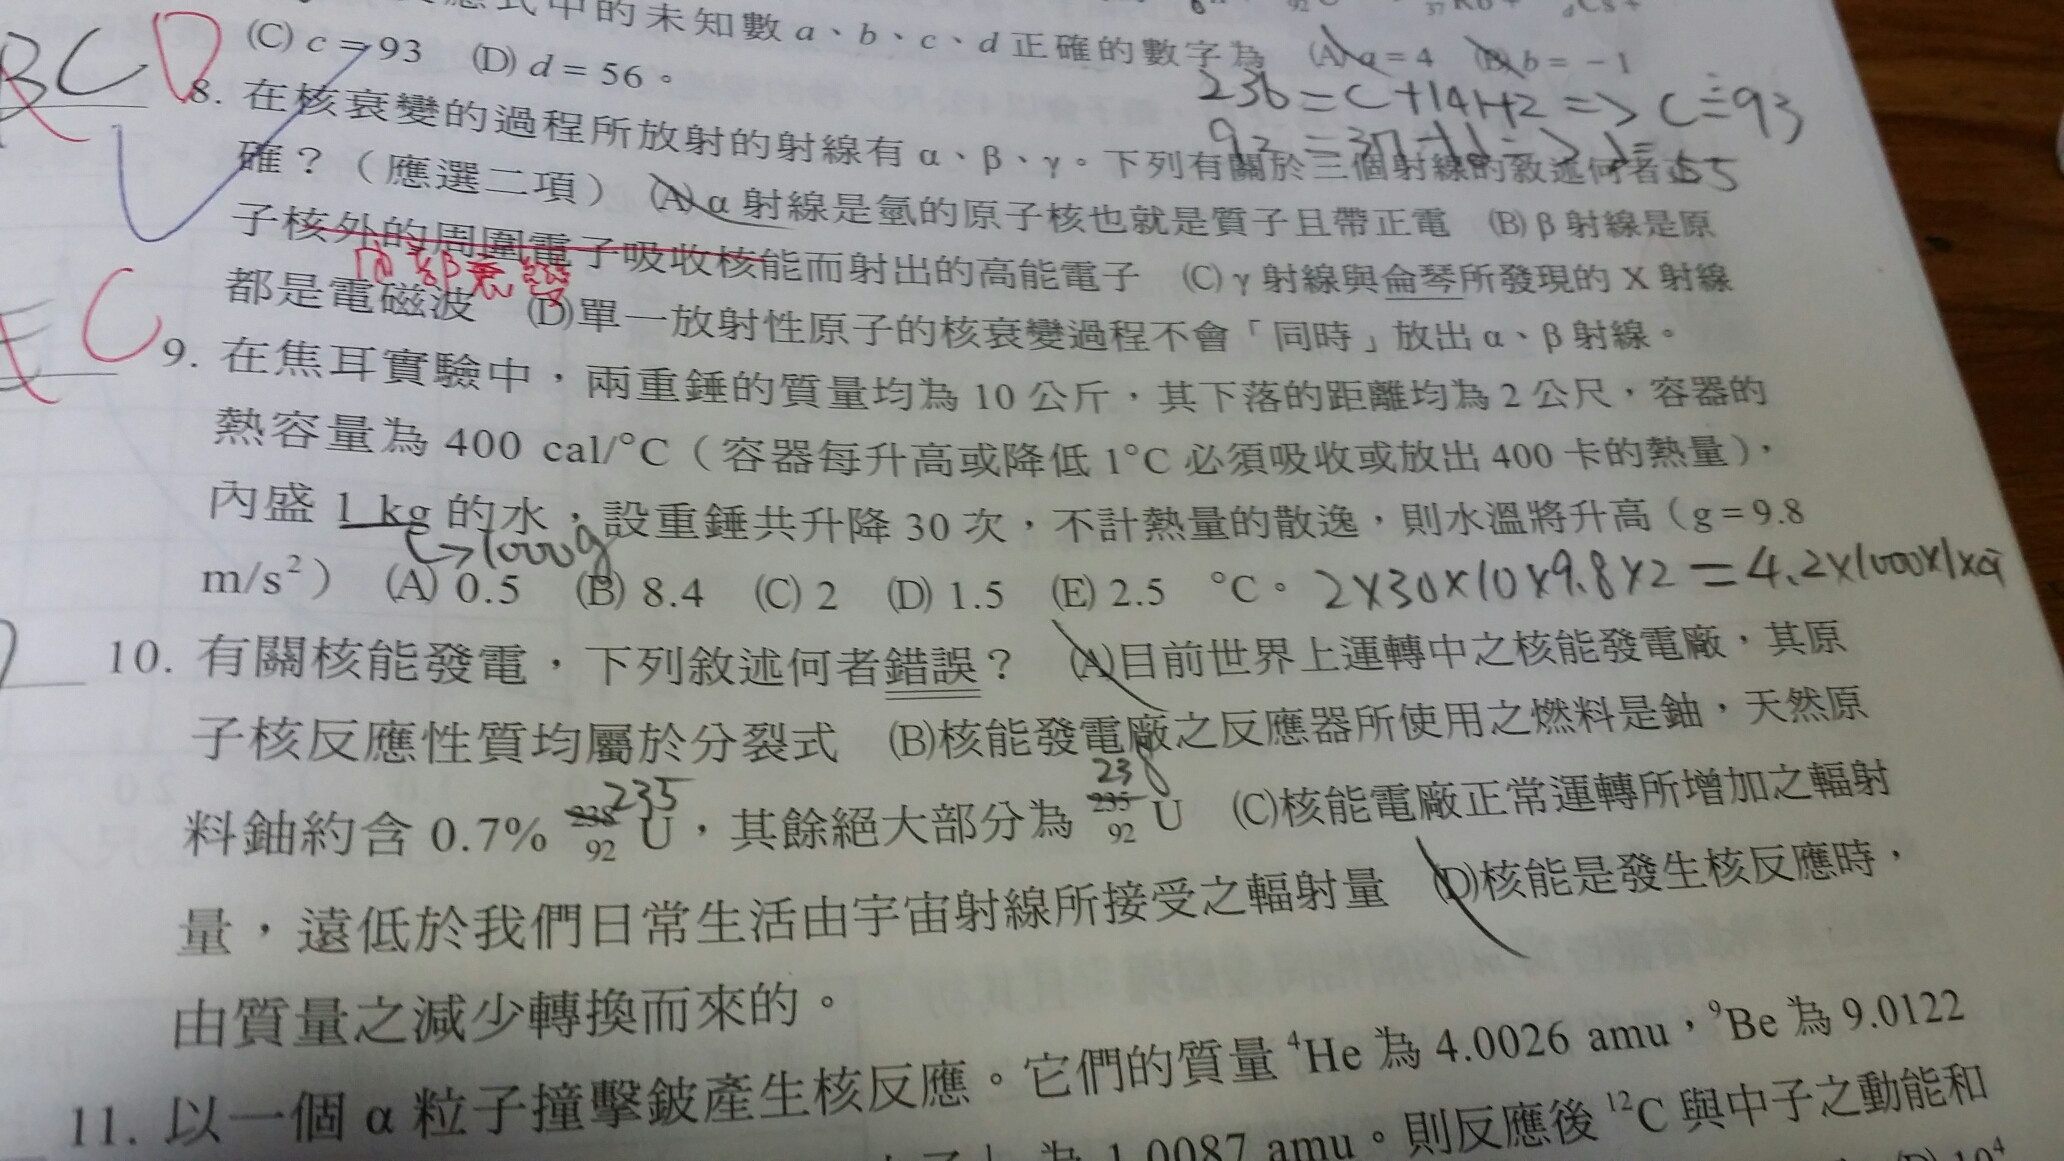 式中的未知數 a、b、c、d 正確的數字為 (A) a = 4 (B) b = −1
(C) c = 93 (D) d = 56。
236 = C + 141 + 2 => C = 93
BCD
8. 在核衰變的過程所放射的射線有 α、β、γ。下列有關於三個射線的敘述何者正
55
確？（應選二項） (A) α 射線是氫的原子核也就是質子且帶正電 (B) β 射線是原
子核外的周圍電子吸收核能而射出的高能電子 (C) γ 射線與侖琴所發現的 X 射線
內部衰變
都是電磁波 (D)單一放射性原子的核衰變過程不會「同時」放出 α、β 射線。
E C
9. 在焦耳實驗中，兩重錘的質量均為 10 公斤，其下落的距離均為 2 公尺，容器的
熱容量為 400 cal/°C（容器每升高或降低 1°C 必須吸收或放出 400 卡的熱量），
內盛 1 kg 的水，設重錘共升降 30 次，不計熱量的散逸，則水溫將升高（g = 9.8
→1000g
m/s²） (A) 0.5 (B) 8.4 (C) 2 (D) 1.5 (E) 2.5 °C。 2×30×10×9.8×2 = 4.2×1000×1×
10. 有關核能發電，下列敘述何者錯誤？ (A)目前世界上運轉中之核能發電廠，其原
子核反應性質均屬於分裂式 (B)核能發電廠之反應器所使用之燃料是鈾，天然原
235 238
料鈾約含 0.7% ²³⁸₉₂U，其餘絕大部分為 ²³⁵₉₂U (C)核能電廠正常運轉所增加之輻射
量，遠低於我們日常生活由宇宙射線所接受之輻射量 (D)核能是發生核反應時，
由質量之減少轉換而來的。
11. 以一個 α 粒子撞擊鈹產生核反應。它們的質量 ⁴He 為 4.0026 amu，⁹Be 為 9.0122
為 1.0087 amu。則反應後 ¹²C 與中子之動能和
(D) 10⁴